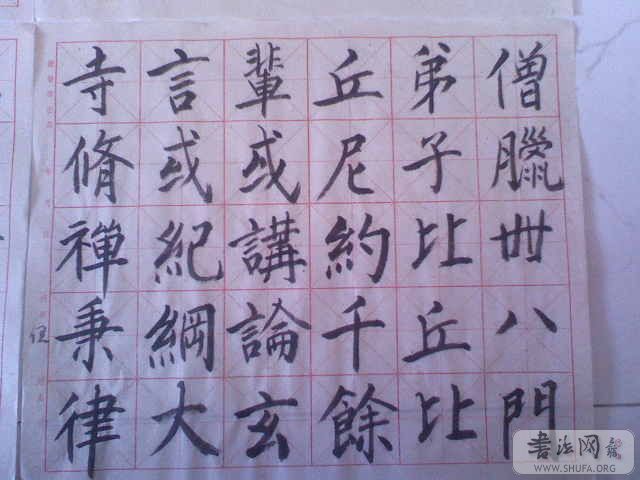 僧臘卅八門
弟子比丘比
丘尼約千餘
輩或講論玄
言或紀綱大
寺脩禪秉律
但
书法网
WWW.SHUFA.ORG